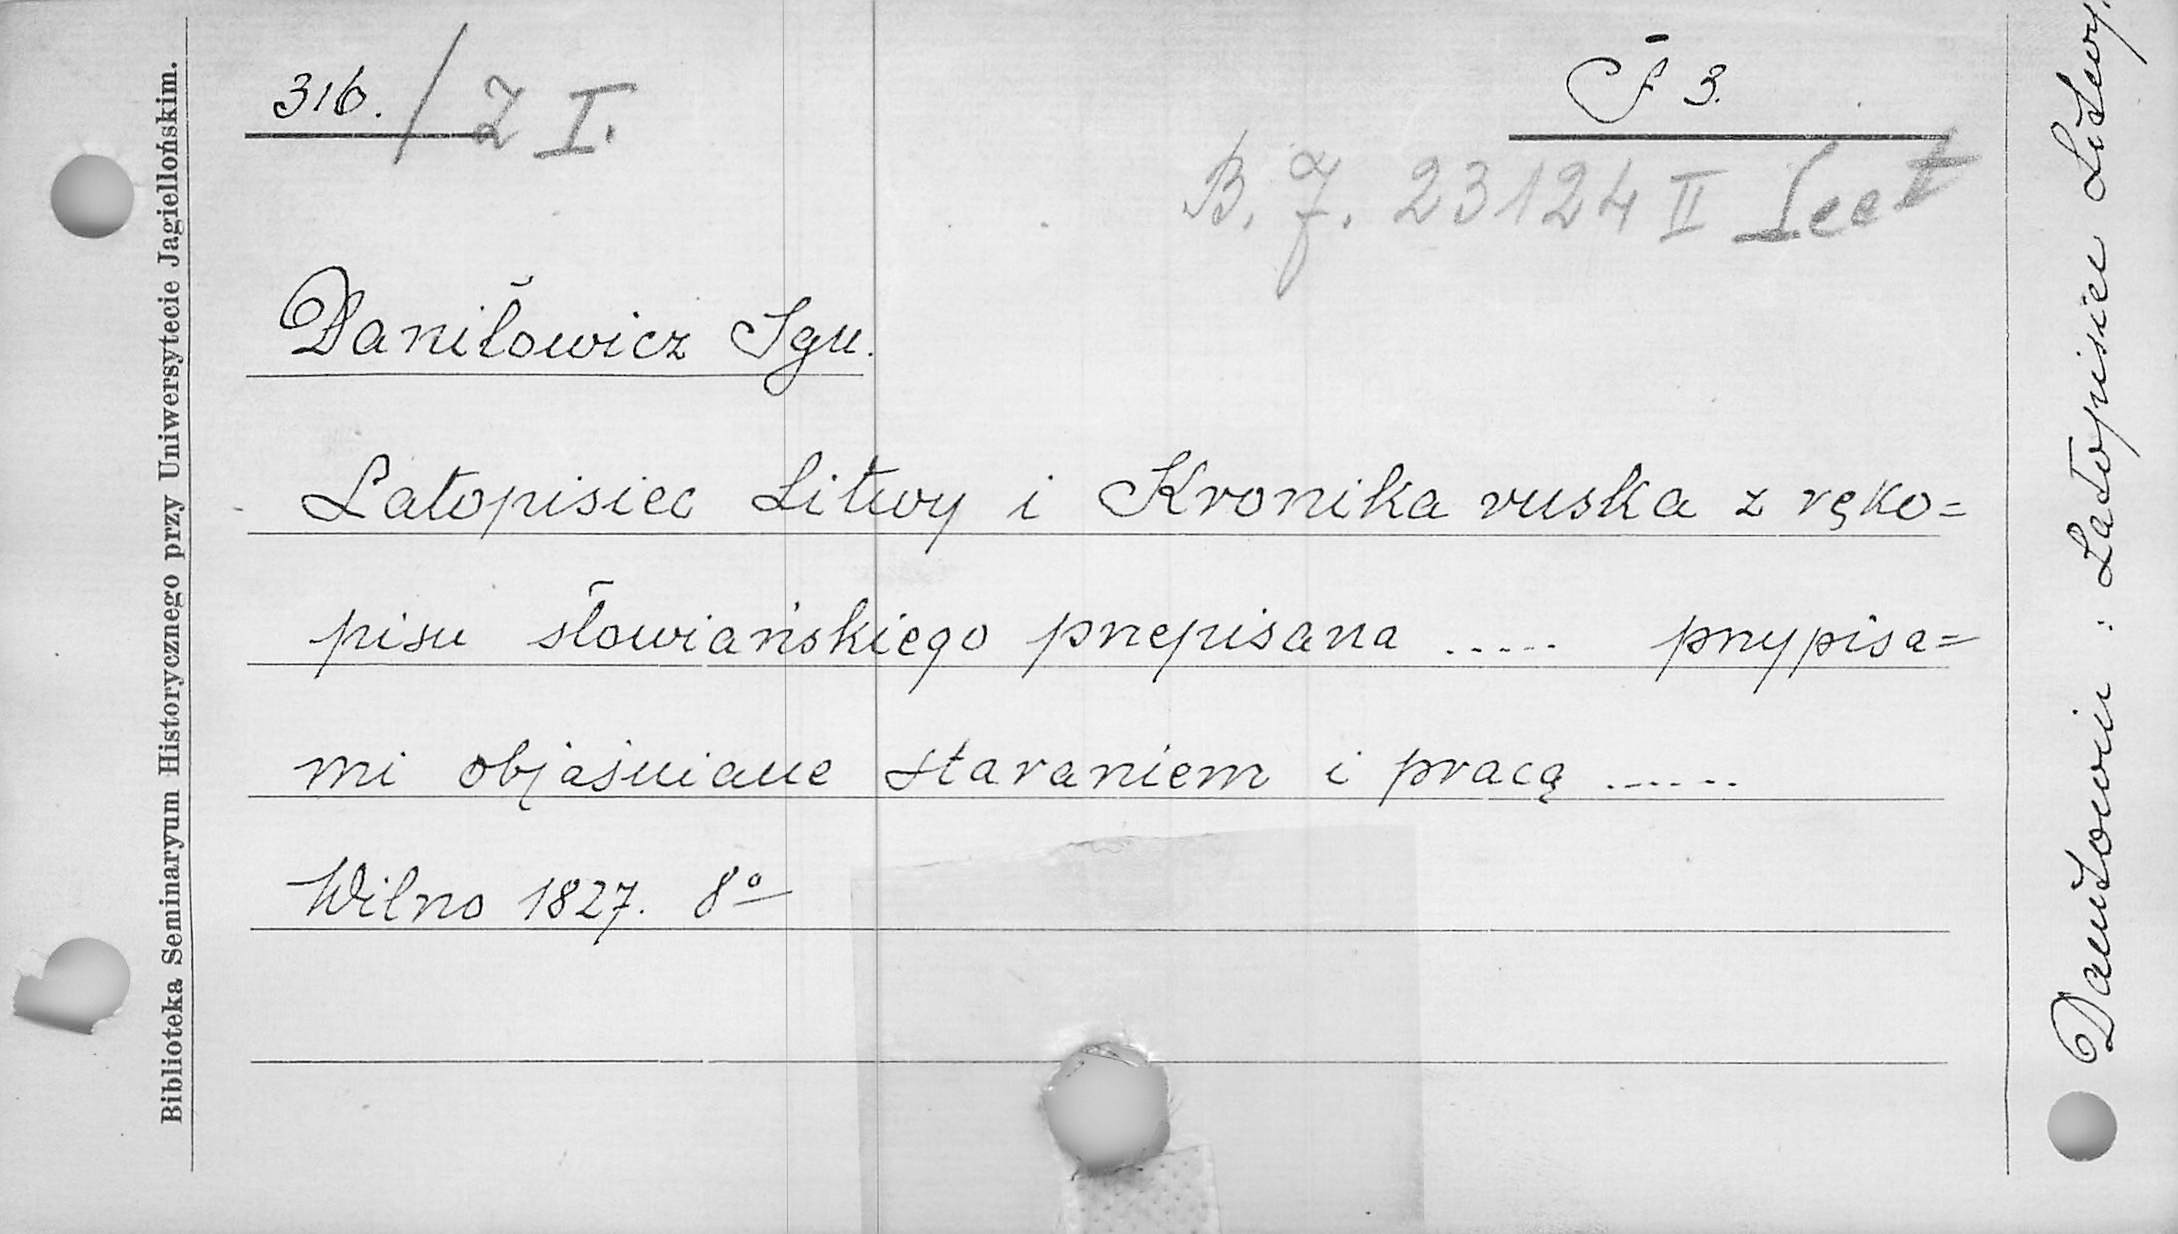 Biblioteka Seminaryum Historycznego przy Uniwersytecie Jagiellońskim.
316. / Z I.
F 3.
B. J. 23124 II
Daniłowicz Ign.
Latopisiec Litwy i Kronika ruska z ręko=
pisu słowiańskiego przepisana ..... przypisa=
mi objaśniane staraniem i pracą ......
Wilno 1827. 8º
Daniłowicz : Latopisiec Litwy.